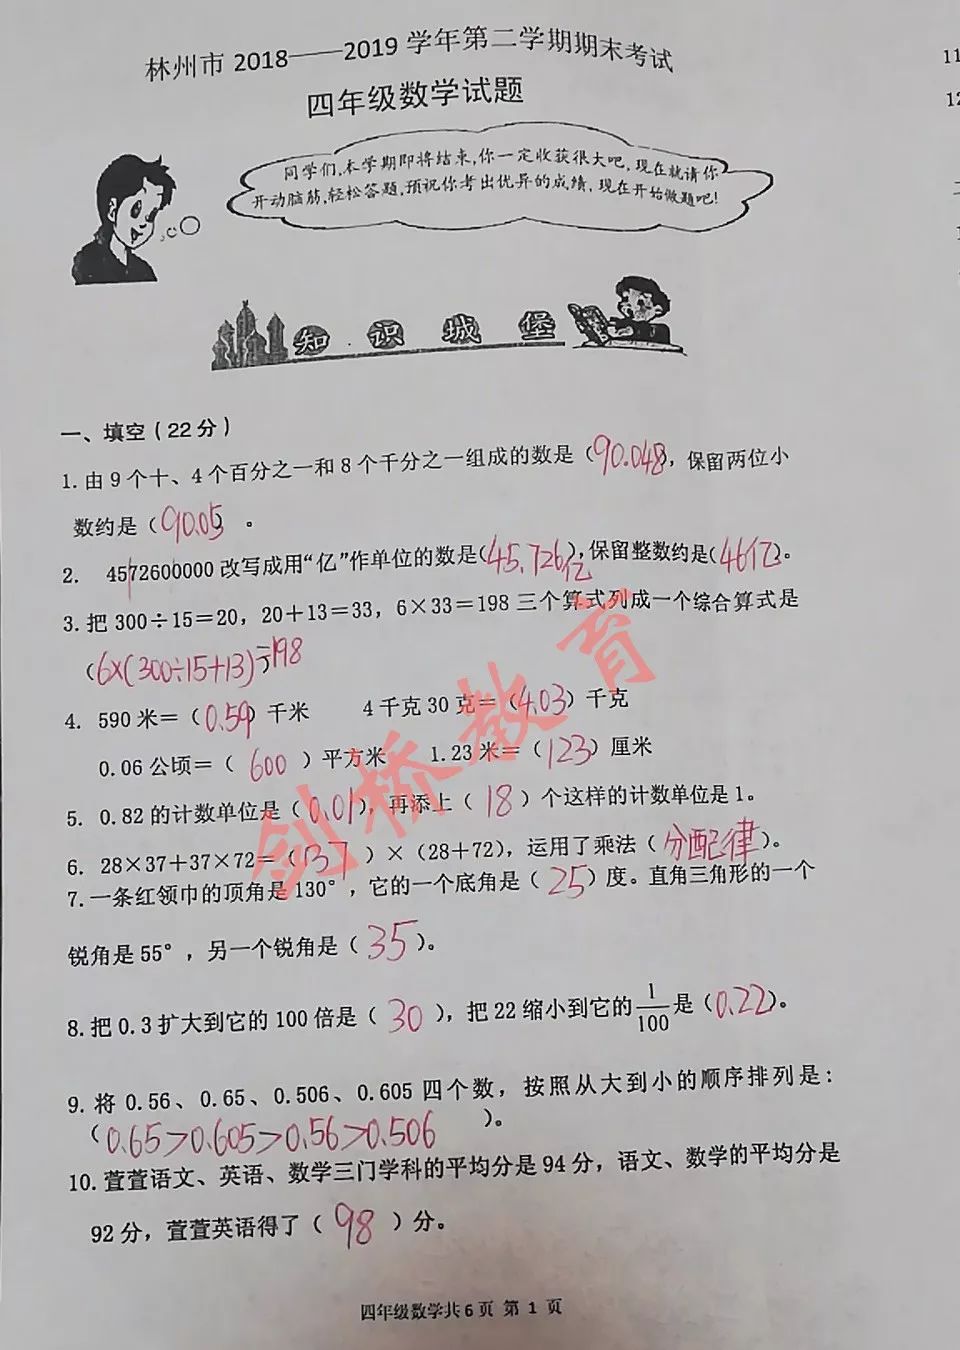 林州市 2018——2019 学年第二学期期末考试
四年级数学试题
同学们,本学期即将结束,你一定收获很大吧,现在就请你
开动脑筋,轻松答题,预祝你考出优异的成绩,现在开始做题吧!
知识城堡
一、填空(22分)
1.由9个十、4个百分之一和8个千分之一组成的数是(90.048),保留两位小
数约是(90.05)。
2. 4572600000改写成用“亿”作单位的数是(45.726亿),保留整数约是(46亿)。
3.把300÷15=20，20+13=33，6×33=198三个算式列成一个综合算式是
(6×(300÷15+13)=198)
4. 590米=(0.59)千米 4千克30克=(4.03)千克
0.06公顷=(600)平方米 1.23米=(123)厘米
5. 0.82的计数单位是(0.01),再添上(18)个这样的计数单位是1。
6. 28×37+37×72=(37)×(28+72),运用了乘法(分配律)。
7.一条红领巾的顶角是130°,它的一个底角是(25)度。直角三角形的一个
锐角是55°,另一个锐角是(35)。
8.把0.3扩大到它的100倍是(30),把22缩小到它的1/100是(0.22)。
9.将0.56、0.65、0.506、0.605四个数，按照从大到小的顺序排列是:
(0.65>0.605>0.56>0.506)。
10.萱萱语文、英语、数学三门学科的平均分是94分,语文、数学的平均分是
92分,萱萱英语得了(98)分。
四年级数学共6页 第1页
剑桥教育
11
12